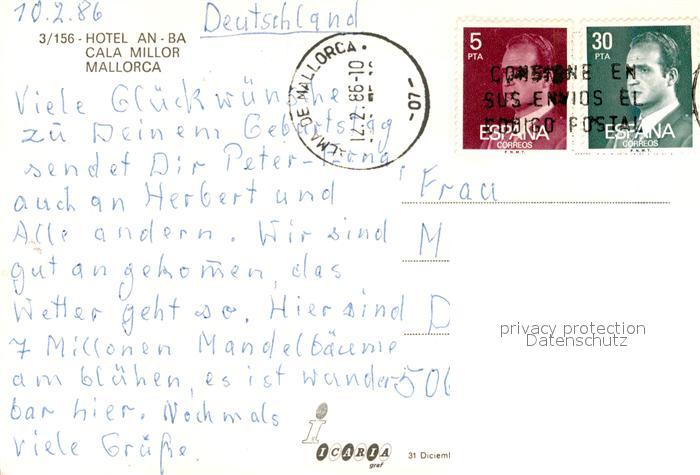 10.2.86
Deutschland
3/156 - HOTEL AN - BA
CALA MILLOR
MALLORCA
Viele Glückwünsche
zu Deinem Geburtstag
sendet Dir Peter-
auch an Herbert und
Alle andern. Wir sind
gut angekomen, das
Wetter geht so. Hier sind
7 Millonen Mandelbäume
am blühen, es ist wunder
bar hier. Nochmals
viele Grüße.
Frau
M
D
506
MA DE MALLORCA
12.2.86-10
-07-
5
PTA
ESPAÑA
CORREOS
F.N.M.T.
30
PTA
ESPAÑA
CORREOS
F.N.M.T.
CONSIGNE EN
SUS ENVIOS EL
CODIGO POSTAL
privacy protection
Datenschutz
ICARIA
graf
31 Diciem